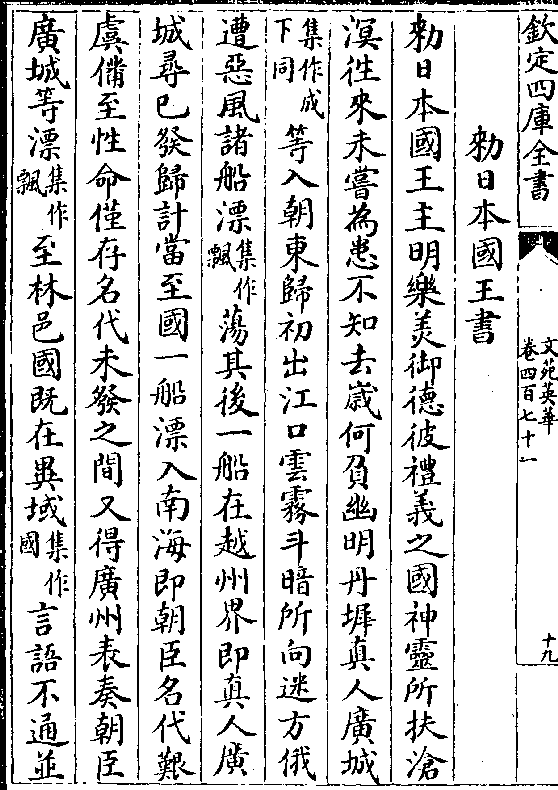 欽定四庫全書
文苑英華
卷四百七十一
十九
勑日本國王書
勑日本國王主明樂美御德彼禮義之國神靈所扶滄
溟徃來未嘗為患不知去嵗何負幽明丹墀真人廣城
集作成下同等入朝東歸初出江口雲霧斗暗所向迷方俄
遭惡風諸船漂集作飄蕩其後一船在越州界即真人廣
城尋已發歸計當至國一船漂入南海即朝臣名代艱
虞備至性命僅存名代未發之間又得廣州表奏朝臣
廣城等漂集作飄至林邑國既在異域集作國言語不通並